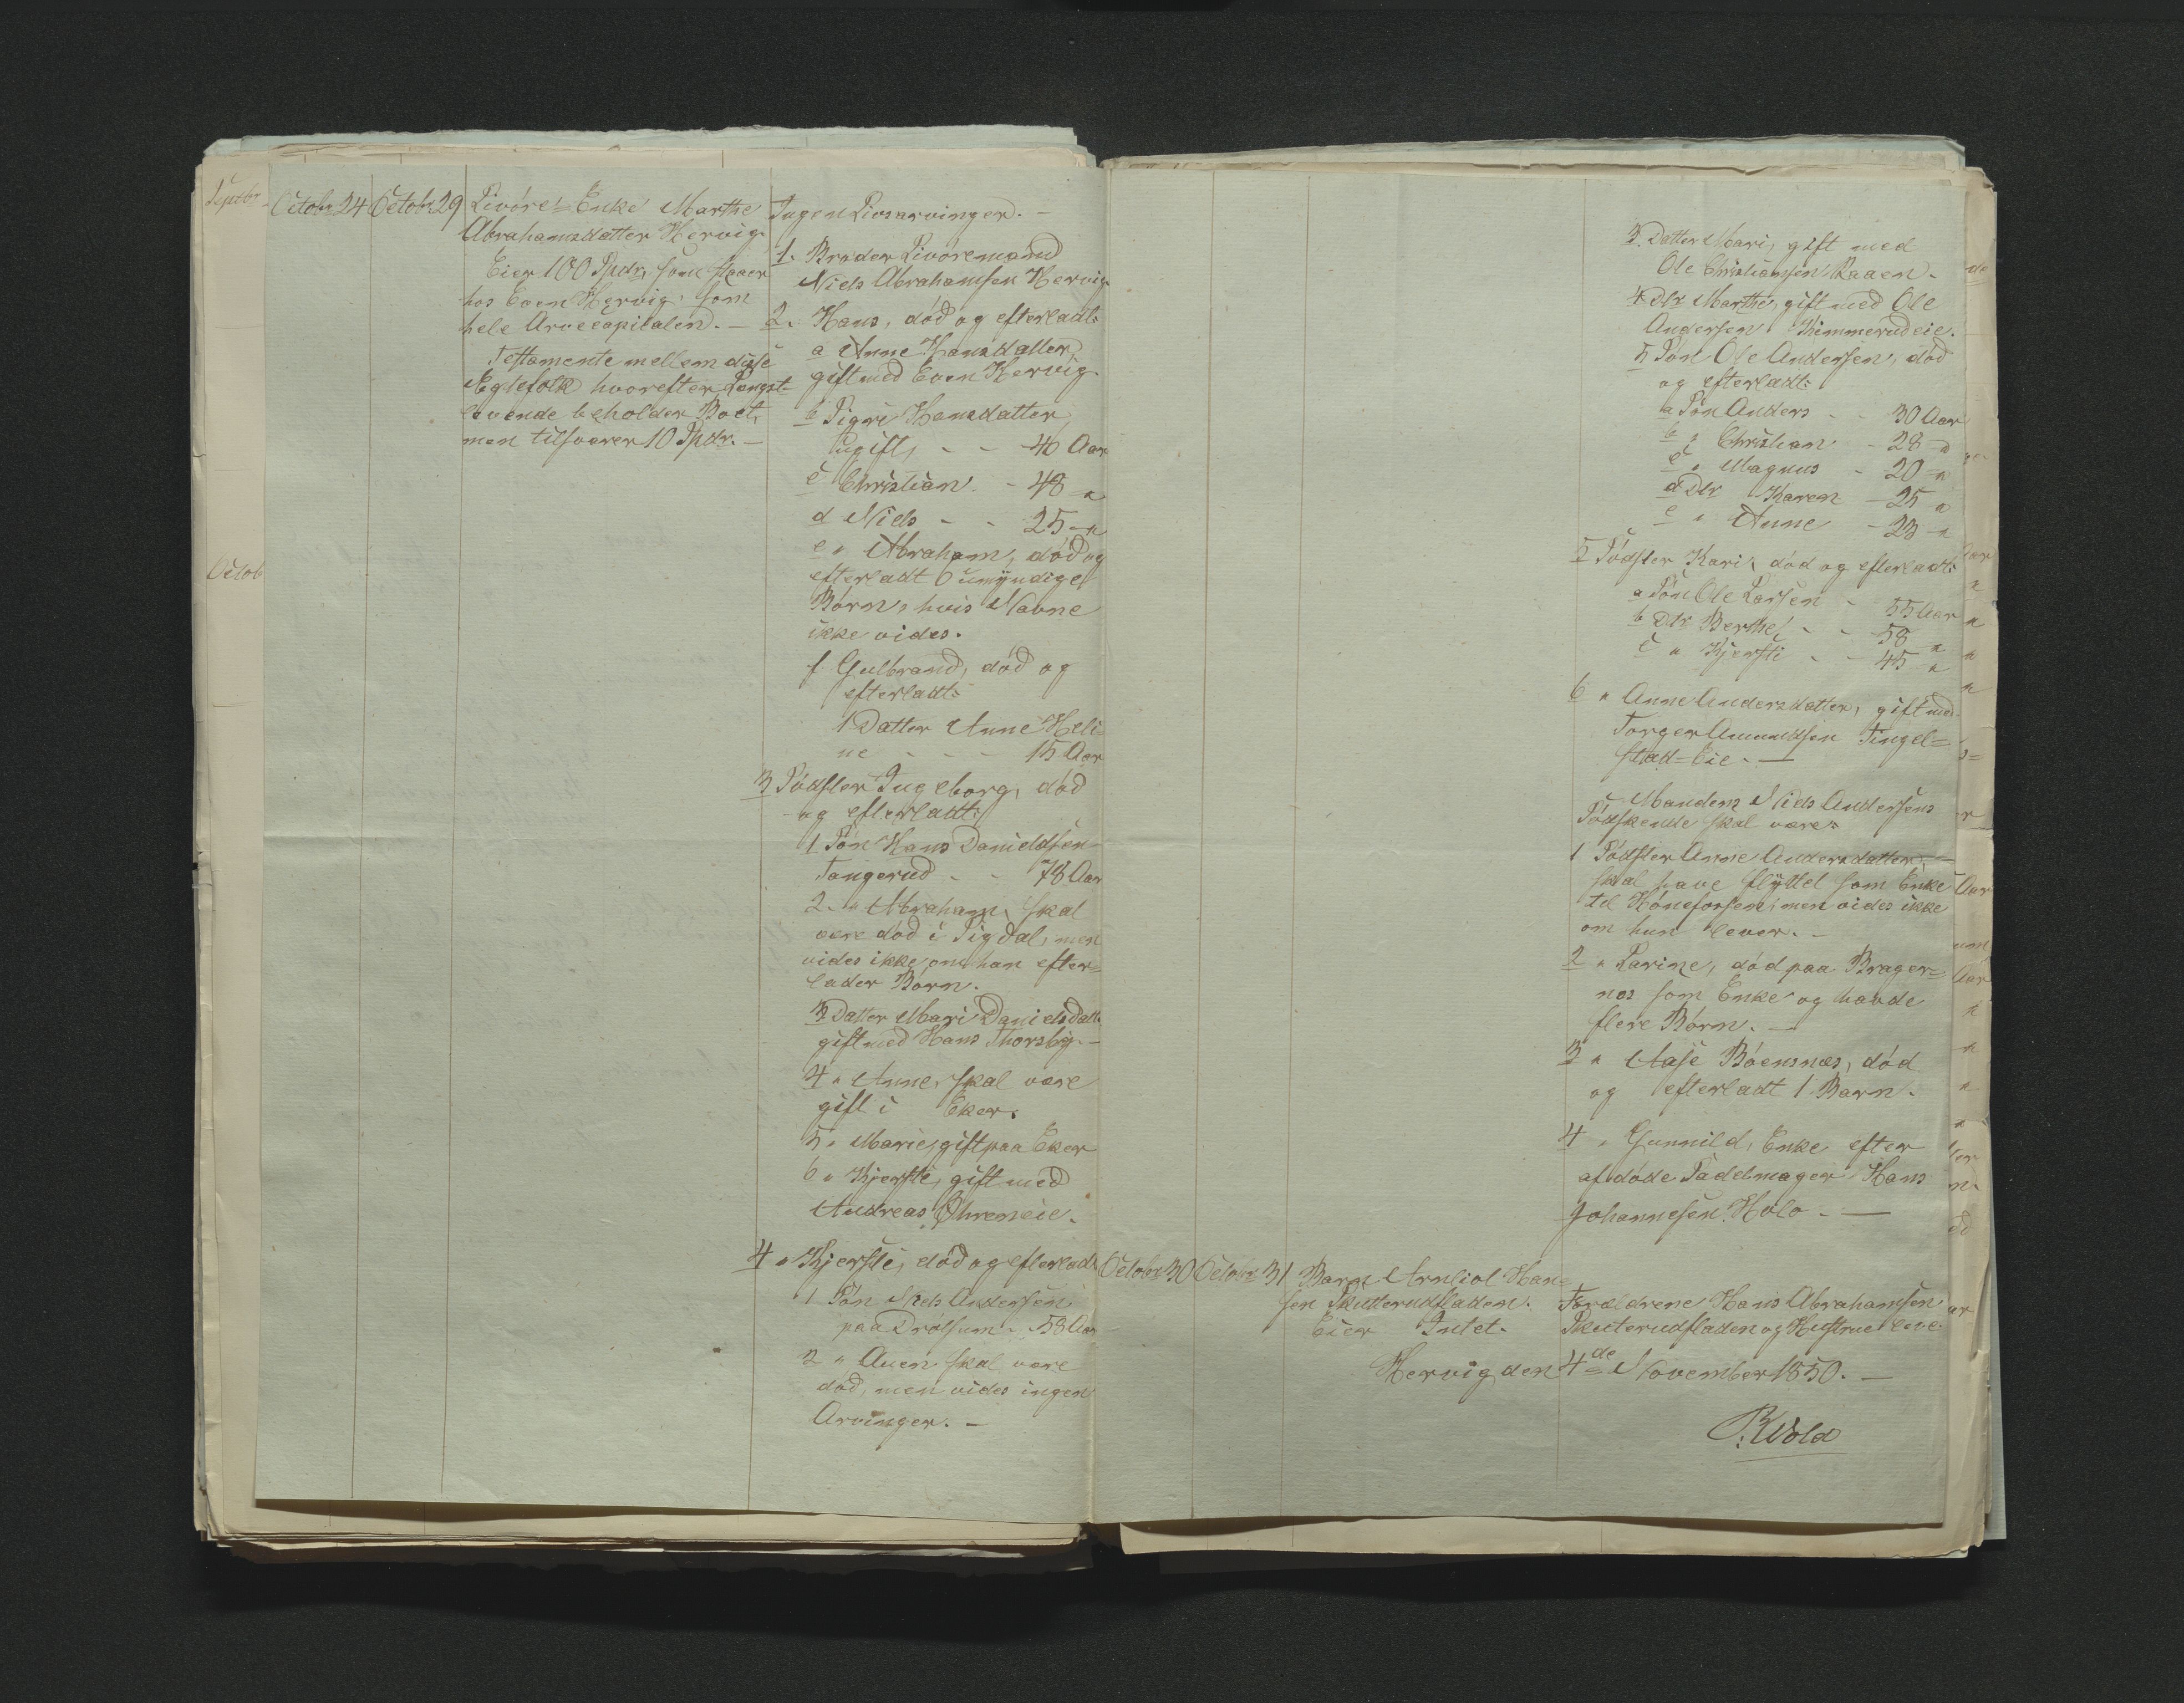 Septbr
Octob
Octobr 24 Octobr 29
Livöre-Enke Marthe
Abrahamsdatter Hervig.
Eier 100 Spdr, som staaer
hos Even Hervig, som
hele Arvecapitalen. —
Testamente mellem disse
Egtefolk hvorefter Længst-
levende beholder Boet,
men tilsvarer 10 Spdr. —
Ingen Livsarvinger. —
1. Broder Livöremand
Niels Abrahamsen Hervig
2. Hans, död og efterladt:
a Anne Hansdatter,
gift med Even Hervig.
b Sigri Hansdatter,
ugift, - - 40 Aar
c Christian. - 48 "
d Niels - - 25 "
e " Abraham, död og
efterladt 6 umÿndige
Börn, hvis Navne
ikke vides.
f Gulbrand, död og
efterladt:
1 Datter Anne Heli=
ne - - - 15 Aar
3 Södster Ingeborg, död
og efterladt:
1 Sön Hans Danieldsen
Tangerud - - 78 Aar
2. " Abraham, skal
være död i Sigdal, men
vides ikke om han efter=
lader Börn.
3 Datter Mari Danielsdatt.
gift med Hans Thorsbÿ. —
4 " Anne, skal være
gift i Eker.
5 " Marie, gift paa Eker
6 " Kjersti, gift med
Andreas Öhreneie.
4 " Kjersti, död og efterladt
1 Sön Niels Andersen
paa Drolsum - 58 Aar
2 " Auen skal være
död, men vides ingen
Arvinger. —
3. Datter Mari, gift med
Ole Christiansen Raaen.
4 Dtr Marthe, gift med Ole
Andersen Kimmerudeie.
5 Sön Ole Andersen, död
og efterladt:
a Sön Anders - - 30 Aar
b " Christian - 28 "
c " Magnus - 20 "
d Dtr Karen - 25 "
e " Anne - 23 "
5 Södster Kari, död og efterladt:
a Sön Ole Larsen - 55 Aar
b Dtr Berthe, - - 58 "
c " Kjersti - - 45 "
6 " Anne Andersdatter, gift med
Torger Amundsen Tingel=
stad-Eie. —
Manden Niels Andersens
Södskende skal være:
1 Södster Anne Andersdatter, —
skal have flÿttet som Enke
til Hönefossen, men vides ikke
om hun lever. —
2 " Karine, död paa Brager=
næs som Enke og havde
flere Börn. —
3 " Aase Böensnæs, död
og efterladt 1 Barn.
4 " Gunnild, Enke efter
afdöde Sadelmager Hans
Johannesen Holo. —
Octobr 30 Octobr 31 Barn Arnliot Han=
sen Skutterudfladen.
Eier Intet.
Forældrene Hans Abrahamsen
Skuterudfladen og Hustrue leve.
Hervig den 4de November 1850. —
Kvold